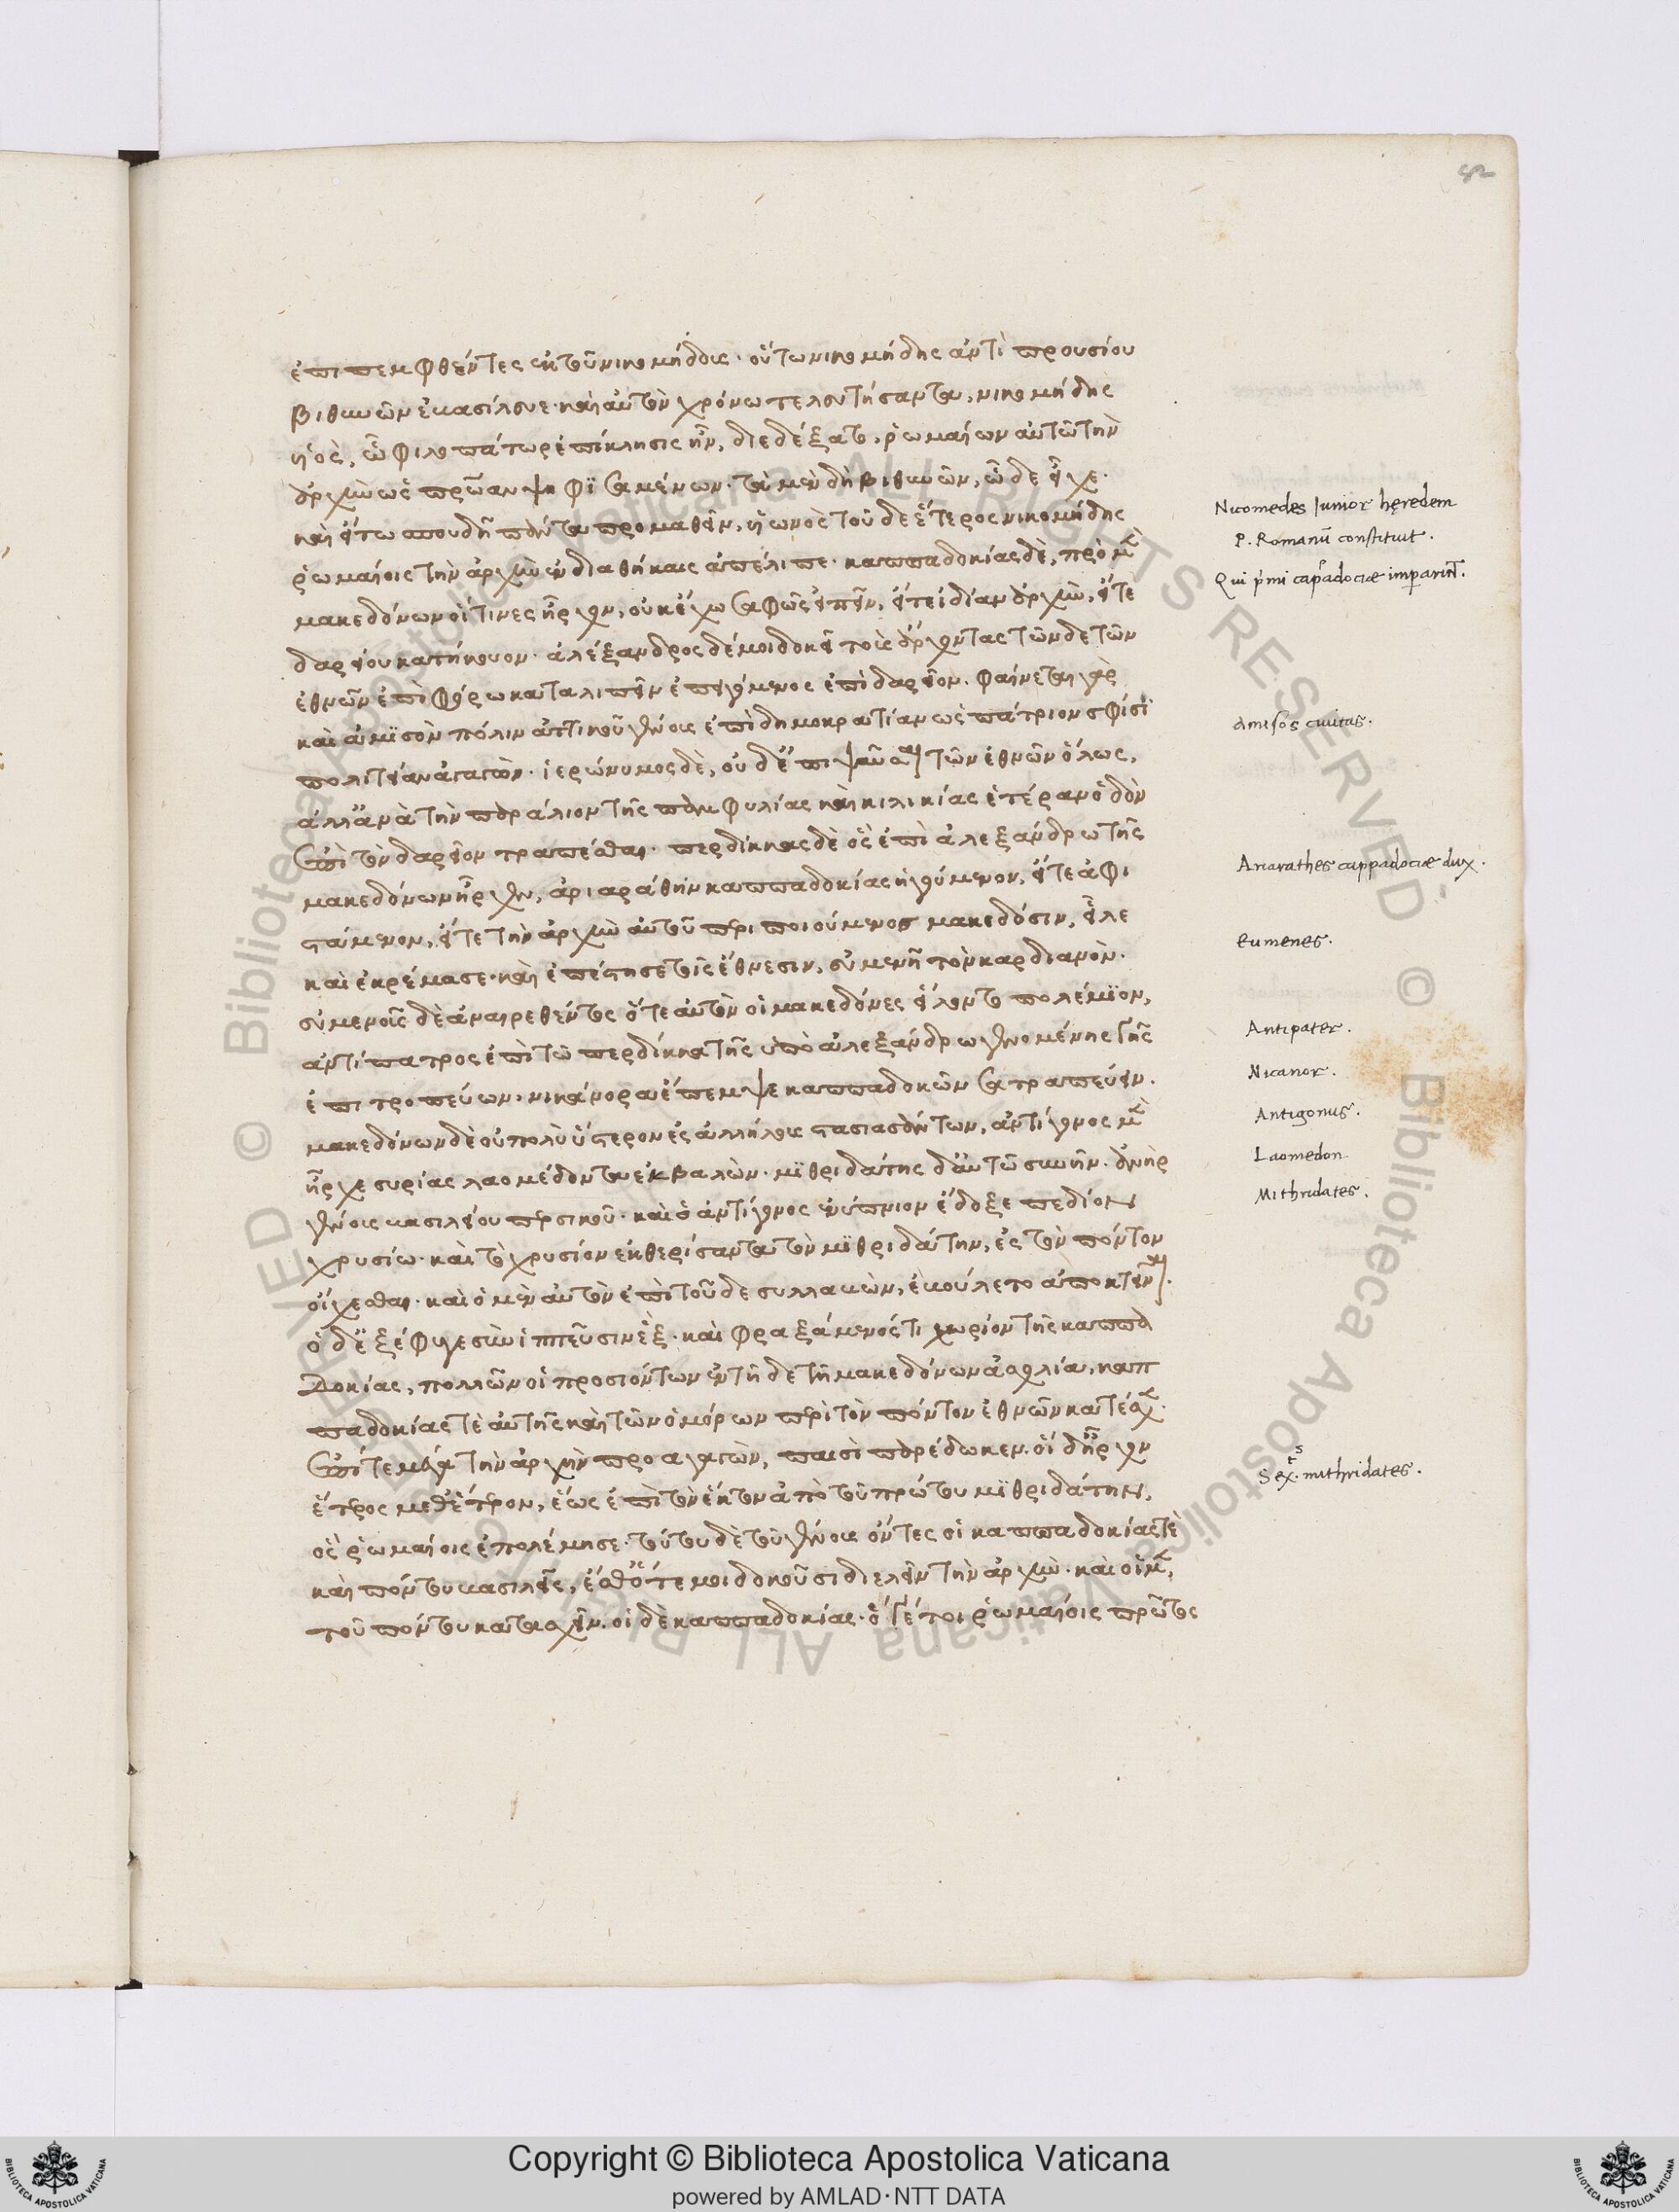 ἐπιπεμφθέντες ἐκ τοῦ νικομήδους. οὕτω νικομήδης ἀντὶ προυσίου
βιθυνῶν ἐβασίλευε. καὶ αὐτὸν χρόνω τελευτήσαντα, νικομήδης
υἱὸς, ὧ φιλοπάτωρ ἐπίκλησις ἦν, διεδέξατο, ῥωμαίων αὐτῶ τὴν
ἀρχὴν ὡς πρώαν ψηφισαμένων. τὰ μὲν δὴ βιθυνῶν, ὧδε εἶχε.
καὶ εἴ τω σπουδὴ πάντα προμαθεῖν, υἱωνὸς τοῦδε ἕτερος νικομήδης
ῥωμαίοις τὴν ἀρχὴν ἐν διαθήκαις ἀπέλιπε. καππαδοκίας δὲ, πρὸ μὲν
μακεδόνων οἵτινες ἦρχον, οὐκ ἔχω σαφῶς εἰπεῖν, εἴτε ἰδίαν ἀρχὴν, εἴτε
δαρείου κατήκουον. ἀλέξανδρος δέ μοι δοκεῖ τοὺς ἄρχοντας τῶνδε τῶν
ἐθνῶν ἐπὶ φόρω καταλιπεῖν ἐπειγόμενος ἐπὶ δαρεῖον. φαίνεται γὰρ
καὶ ἀμισὸν πόλιν ἀττικοῦ γένους ἐπὶ δημοκρατίαν ὡς πάτριον σφίσι
πολιτείαν ἀγαγών. ἱερώνυμος δὲ, οὐδ' ἐπιψαῦσαι τῶν ἐθνῶν ὅλως,
ἀλλ' ἀνὰ τὴν παράλιον τῆς παμφυλίας καὶ κιλικίας ἑτέραν ὁδὸν
ἐπὶ τὸν δαρεῖον τραπέσθαι. περδίκκας δὲ ὃς ἐπὶ ἀλεξάνδρω τῆς
μακεδόνων ἦρχεν, ἀριαράθην καππαδοκίας ἡγούμενον, εἴτε ἀφι
στάμενον, εἴτε τὴν ἀρχὴν αὐτοῦ περιποιούμενος μακεδόσιν, εἷλε
καὶ ἐκρέμασε. καὶ ἐπέστησε τοῖς ἔθνεσιν, εὐμενῆ τὸν καρδιανόν.
εὐμενοῦς δὲ ἀναιρεθέντος ὅτε αὐτὸν οἱ μακεδόνες εἵλοντο πολέμιον,
ἀντίπατρος ἐπὶ τῶ περδίκκα τῆς ὑπὸ ἀλεξάνδρω γενομένης γῆς
ἐπιτροπεύων. νικάνορα ἔπεμψε καππαδοκῶν σατραπεύειν.
μακεδόνων δὲ οὐ πολὺ ὕστερον ἐς ἀλλήλους στασιασάντων, ἀντίγονος μὲν
ἦρχε συρίας λαομέδοντα ἐκβαλών. μιθριδάτης δ' αὐτῶ συνῆν. ἀνὴρ
γένους βασιλείου περσικοῦ. καὶ ὁ ἀντίγονος ἐνύπνιον ἔδοξε πεδίον
χρυσίω. καὶ τὸ χρυσίον ἐκθερίσαντα τὸν μιθριδάτην, ἐς τὸν πόντον
οἴχεσθαι. καὶ ὁ μὲν αὐτὸν ἐπὶ τοῦδε συλλαβὼν, ἐβούλετο ἀποκτεῖναι.
ὁ δ' ἐξέφυγε σὺν ἱππεῦσιν ἕξ. καὶ φραξάμενός τι χωρίον τῆς καππα
δοκίας, πολλῶν οἱ προσιόντων ἐν τῆδε τῆ μακεδόνων ἀσχολία, καπ
παδοκίας τὲ αὐτῆς καὶ τῶν ὁμόρων περὶ τὸν πόντον ἐθνῶν κατέσχεν.
ἐπί τε μέγα τὴν ἀρχὴν προαγαγὼν, παισὶ παρέδωκεν. οἱ δ' ἦρχον
ἕτερος μεθ' ἕτερον, ἕως ἐπὶ τὸν ἕκτον ἀπὸ τοῦ πρώτου μιθριδάτην,
ὃς ῥωμαίοις ἐπολέμησε. τούτου δὲ τοῦ γένους ὄντες οἱ καππαδοκίας τὲ
καὶ πόντου βασιλεῖς, ἔσθ' ὅτε μοι δοκοῦσι διελεῖν τὴν ἀρχὴν. καὶ οἱ μὲν,
τοῦ πόντου κατασχεῖν. οἱ δὲ καππαδοκίας. ὅ γέ τοι ῥωμαίοις πρῶτος
Nicomedes Junior hęredem
P. Romanũ constituit.
Qui p'mi cap'adociæ imperarint.
Amisos civitas.
Ariarathes cappadociæ dux.
eumenes.
Antipater.
Nicanor.
Antigonus.
Laomedon
Mithridates.
Sex. mithridates.
Copyright © Biblioteca Apostolica Vaticana
powered by AMLAD·NTT DATA